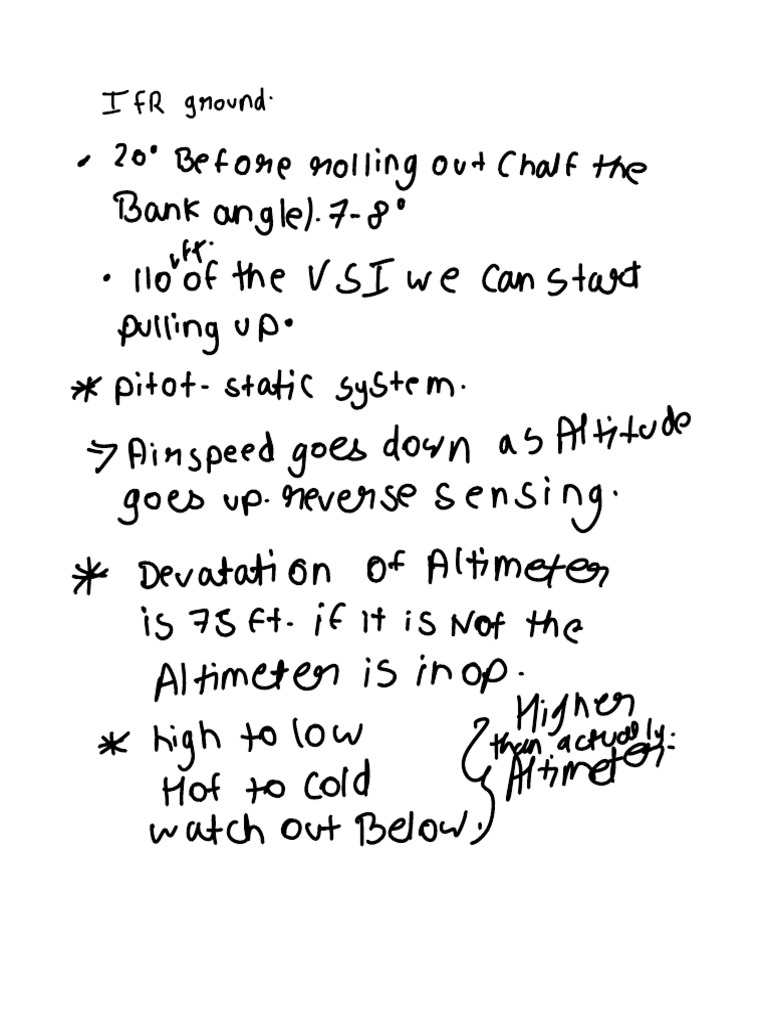 IFR ground.
• 20° Before rolling out (half the
Bank angle). 7-8°
• 110 ft. of the VSI we can start
pulling up.
* pitot-static system.
⇒ Airspeed goes down as Altitude
goes up. reverse sensing.
* Devatation of Altimeter
is 75 ft. if it is Not the
Altimeter is inop.
* high to low
Hot to Cold
watch out Below.
Higher
than actually:
Altimeter.